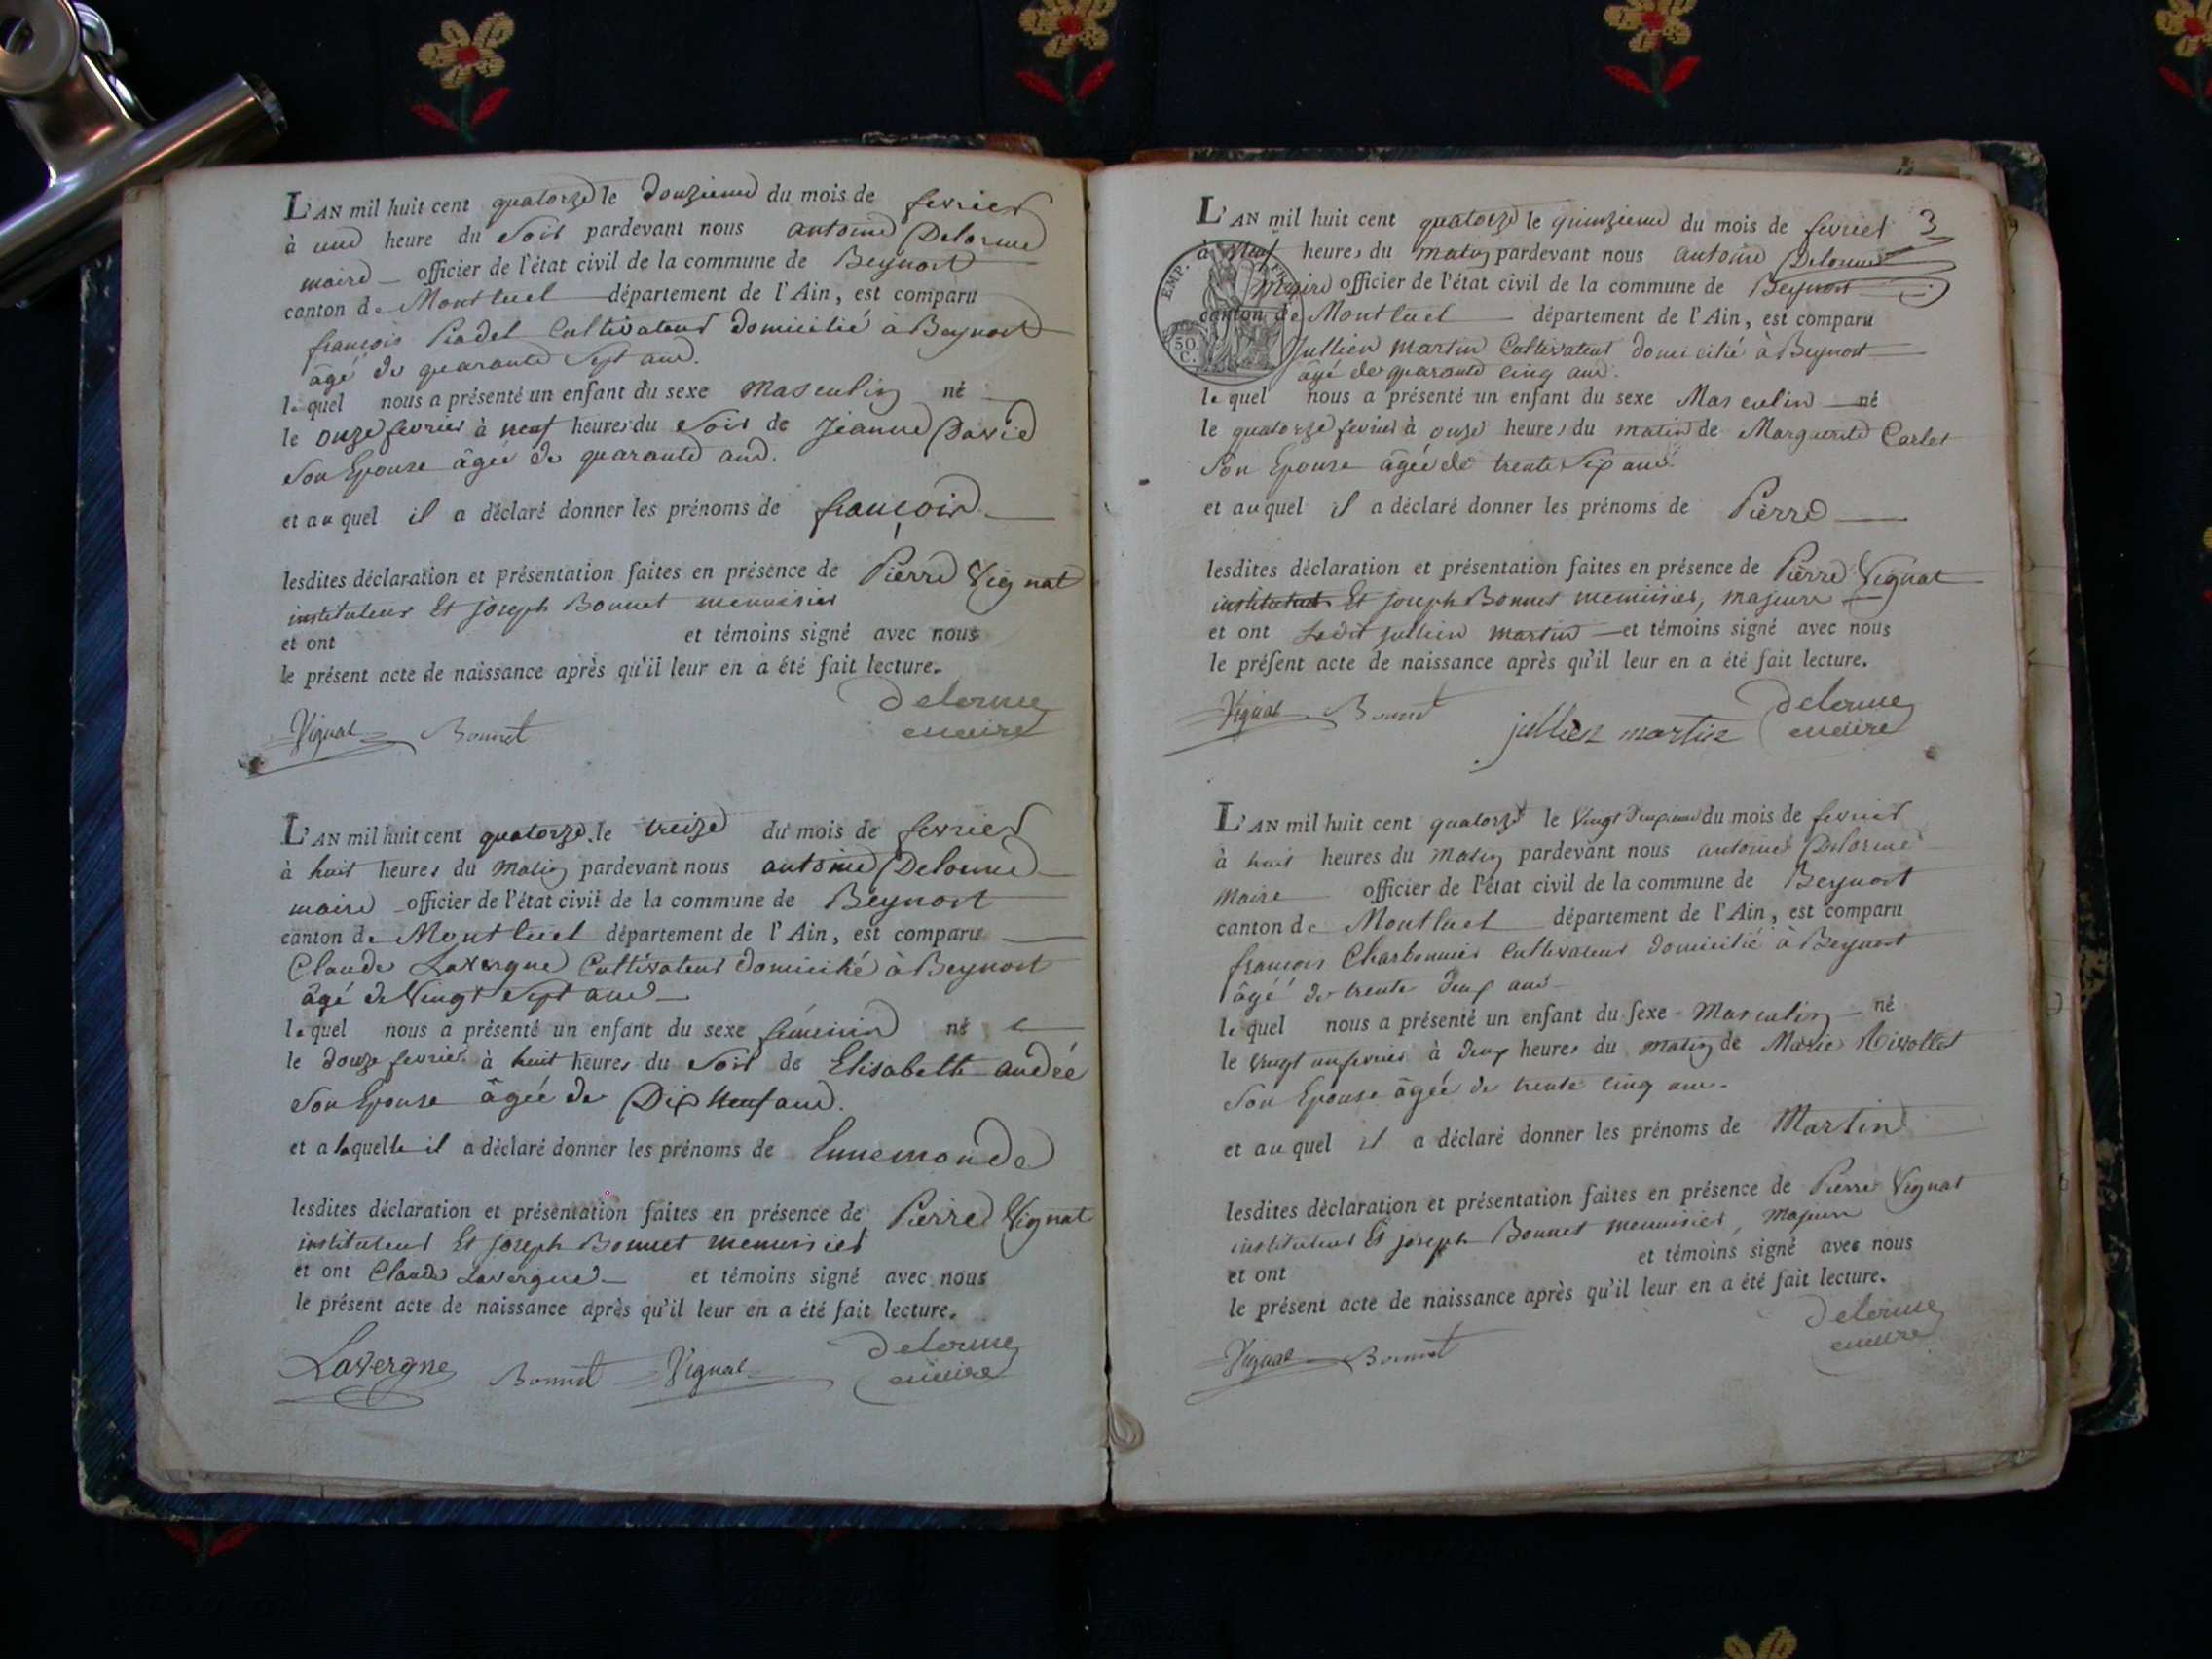 L'AN mil huit cent quatorze le douzieme du mois de fevrier
à une heure du soir pardevant nous antoine Delorme
maire officier de l'état civil de la commune de Beynost
canton de Montluel département de l'Ain, est comparu
françois Pradel Cultivateur domicilié à Beynost
âgé de quarante Sept ans.
lequel nous a présenté un enfant du sexe masculin né
le onze fevrier à neuf heures du soir de Jeanne David
son Epouse âgée de quarante ans.
et auquel il a déclaré donner les prénoms de françois
lesdites déclaration et présentation faites en présence de Pierre Vignat
instituteur Et joseph Bonnet menuisier
et ont et témoins signé avec nous
le présent acte de naissance après qu'il leur en a été fait lecture.
Vignat Bonnet Delorme
maire
L'AN mil huit cent quatorze le treize du mois de fevrier
à huit heures du matin pardevant nous antoine Delorme
maire officier de l'état civil de la commune de Beynost
canton de Montluel département de l'Ain, est comparu
Claude Lavergne Cultivateur domicilié à Beynost
âgé de Vingt Sept ans
lequel nous a présenté un enfant du sexe féminin né e
le douze fevrier à huit heures du soir de Elisabeth andré
son Epouse âgée de Dix Neuf ans.
et a laquelle il a déclaré donner les prénoms de Ennemonde
lesdites déclaration et présentation faites en présence de Pierre Vignat
instituteur Et joseph Bonnet menuisier
et ont Claude Lavergne et témoins signé avec nous
le présent acte de naissance après qu'il leur en a été fait lecture.
Lavergne Bonnet Vignat Delorme
maire
L'AN mil huit cent quatorze le quinzieme du mois de fevrier 3
à neuf heures du matin pardevant nous antoine Delorme
maire officier de l'état civil de la commune de Beynost
canton de Montluel département de l'Ain, est comparu
EMP. FR
50
C.
Jullien martin Cultivateur domicilié à Beynost
âgé de quarante cinq ans.
lequel nous a présenté un enfant du sexe Masculin né
le quatorze fevrier à onze heures du matin de Marguerite Carlet
son Epouse âgée de trente six ans
et auquel il a déclaré donner les prénoms de Pierre
lesdites déclaration et présentation faites en présence de Pierre Vignat
instituteur Et joseph Bonnet menuisier, majeurs
et ont Ledit jullien martin et témoins signé avec nous
le préſent acte de naissance après qu'il leur en a été fait lecture.
Vignat Bonnet jullien martin Delorme
maire
L'AN mil huit cent quatorze le Vingt deuxieme du mois de fevrier
à huit heures du matin pardevant nous antoine Delorme
maire officier de l'état civil de la commune de Beynost
canton de Montluel département de l'Ain, est comparu
françois Charbonnier Cultivateur domicilié à Beynost
âgé de trente deux ans
lequel nous a présenté un enfant du ſexe Masculin né
le vingt un fevrier à deux heures du matin de Marie Rivollet
son Epouse âgée de trente cinq ans.
et auquel il a déclaré donner les prénoms de Martin
lesdites déclaration et présentation faites en présence de Pierre Vignat
instituteur Et joseph Bonnet menuisier, majeurs
et ont et témoins signé avec nous
le présent acte de naissance après qu'il leur en a été fait lecture.
Vignat Bonnet Delorme
maire